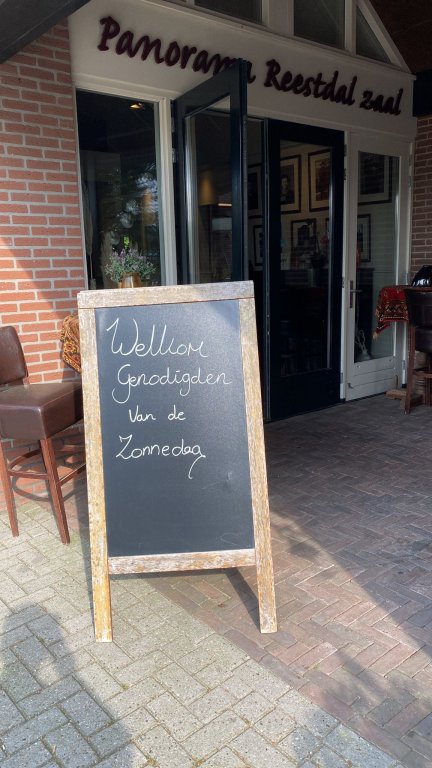 Panorama Reestdal zaal
Wellkom
Genodigden
Van de
Zonnedag